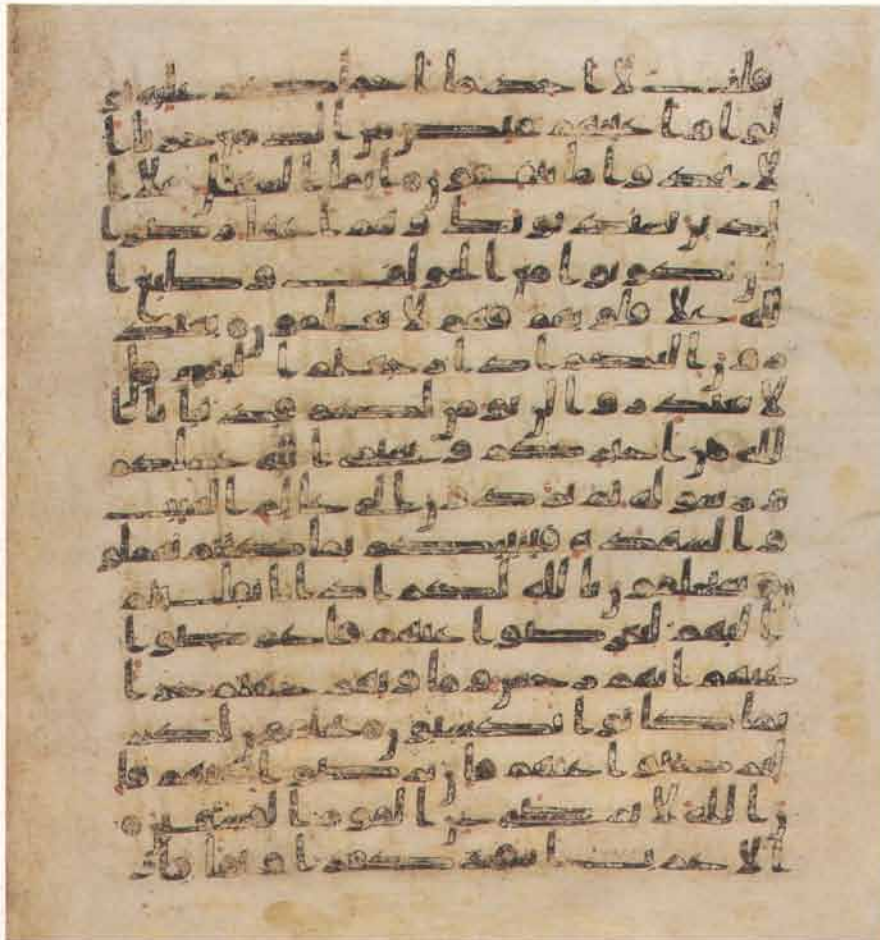 قلت لا اجد ما احملكم عليه تو
لوا واعينهم تفيض من الدمع حزنا ا
لا يجدوا ما ينفقون انما السبيل على ا
لذين يستذنونك وهم اغنيا رضوا
بان يكونوا مع الخوالف وطبع ا
لله على قلوبهم فهم لا يعلمون يعتذ
رون اليكم اذا رجعتم اليهم قل
لا تعتذروا لن نومن لكم قد نبانا ا
لله من اخباركم وسيرى الله عملكم
ورسوله ثم تردون الى علم الغيب
والشهدة فينبيكم بما كنتم تعملو
ن سيحلفون بالله لكم اذا انقلبتم
اليهم لتعرضوا عنهم فاعرضوا
عنهم انهم رجس وماويهم جهنم جزا
بما كانوا يكسبون يحلفون لكم
لترضوا عنهم فان ترضوا عنهم فا
ن الله لا يرضى عن القوم الفسقين
الاعراب اشد كفرا ونفاقا وا